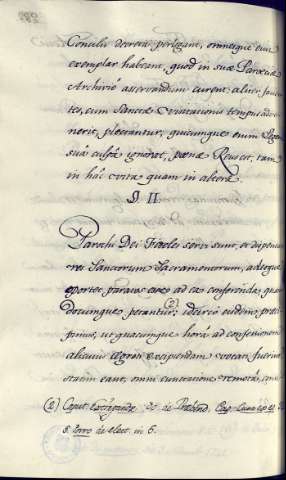 Concilii decreta perlegant, omnesque eius
exemplar habeant, quod in suæ Paræciæ
Archivio asservandum curent: aliter, facien
tes, cum Sanctæ Visitationis tempus adve
nerit, plectantur, quicumque enim Legem
suâ culpâ ignorat, pœnæ Reus est, tam
in hâc vitâ quam in alterâ.
§. II.
Parochi Dei fideles servi sunt, et dispensato
res Sanctorum Sacramentorum, adeoque
oportet paratos esse ad ea conferenda, quan
documque petantur; (2) idcirco eisdem præci
pimus, ut quacumque horâ ad confessionem
alicuius ægroti excipiendam vocati fuerint
statim eant, omni cunctatione remotâ, cum
(2) Caput de Præbend.
§. Porro de elect. in 6.